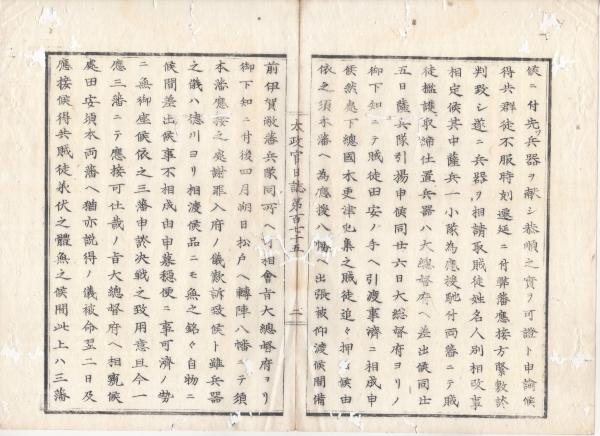 候ニ付先ツ兵器ヲ献シ恭順之實ヲ可證ト申諭候
得共群徒不服時刻遷延ニ付弊藩應接方嚴敷談
判致シ遂ニ兵器ヲ相請取賊徒姓名人別相改事
相定候其中薩兵一小隊為應援馳付両藩ニテ賊
徒檻護取締仕置兵器ハ大總督府ヘ差出候同廿
五日薩兵隊引揚申候同廿六日大總督府ヨリノ
御下知ニテ賊徒田安ノ手ヘ引渡事濟ニ相成申
候然處下總國木更津屯集之賊徒追々押出候由
依之須本藩ヘ為應援八幡ヘ出張被仰渡候間備
太政官日誌第百七十五 二
前伊賀藩兵隊同所ヘ相會旨大總督府ヨリ
御下知ニ付後四月朔日松戸ヘ轉陣八幡ニテ須
本藩應接之處謝罪入府ノ儀歎訴致候ト雖兵器
之儀ハ徳川ヨリ相渡候品ニモ無之銘々自物ニ
候間差出候事不相成由申募穏便ニ事可濟ノ勢
ニ無御座候依之三藩申談決戦之致用意且今一
應三藩ニテ應接可仕哉ノ旨大總督府ヘ相窺候
處田安須本両藩ヘ猶亦説得ノ儀被命翌二日及
應接候得共賊徒承伏之體無之候間此上ハ三藩